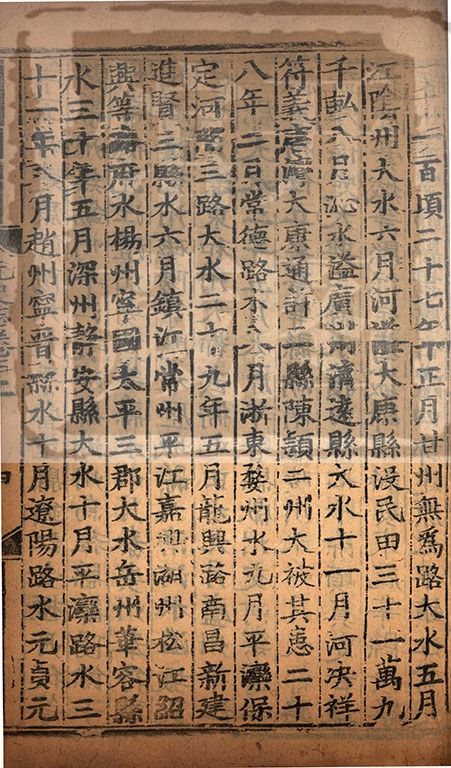 一百頃二十七年正月甘州無為路大水五月
江陰州大水六月河溢大康縣没民田三十一萬九
千畝八月沁水溢廣州清遠縣大水十一月河决祥
符義唐灣大康通計二縣陳潁二州大被其患二十
八年二月常德路水八月浙東婺州水九月平灤保
定河間三路大水二十九年五月龍興路南昌新建
進賢三縣水六月鎮江常州平江嘉興湖州松江紹
興等路府水楊州寧國太平三郡大水岳州華容縣
水三十年五月深州靜安縣大水十月平灤路水三
十一年八月趙州寧晉縣水十月遼陽路水元貞元